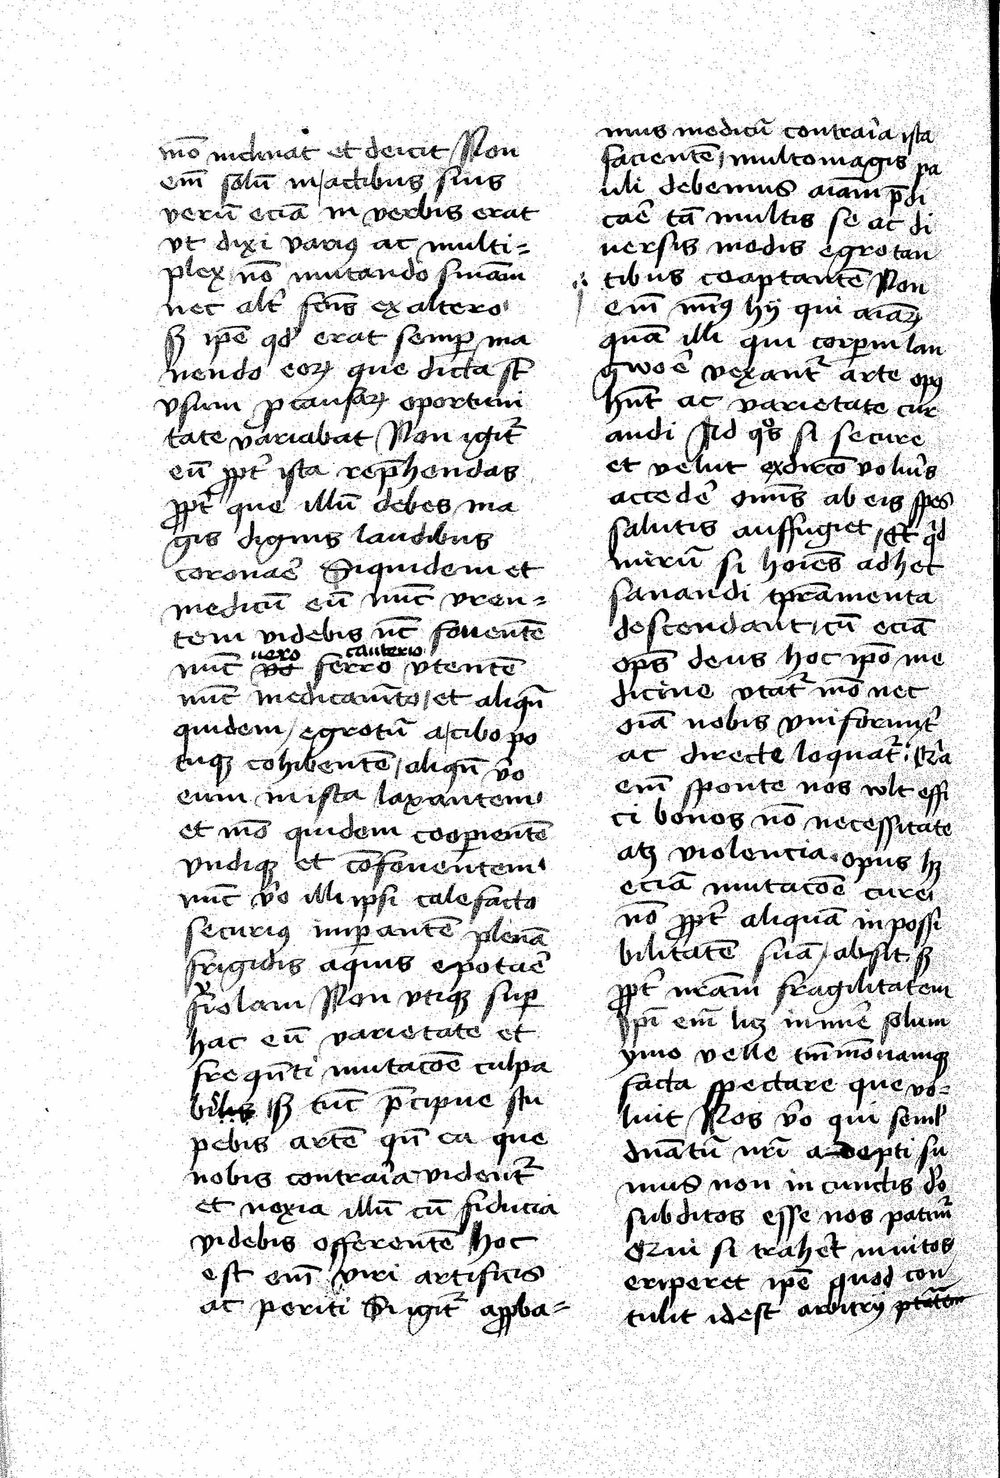 mō inclinat et deicit Non
em̄ solū in actibus suis
verū eciā in verbis erat
vt dixi varius ac multi=
plex nō mutando suiam̄
nec alt' fcūs ex altero
sꝫ ip̄e qd' erat semper ma
nendo eoꝝ que dicta st̄
vsum p causaꝝ oportuni
tate variabat Non igit̄
eū ꝓpt' ista rep̄hendas
ꝓpt' que illū debes ma
gis dignis laudibus
coronar̄ Siquidem et
medicū eū nūc vren=
tem videbis nc̄ fouentē
nūc vero ferro cauterio vtentē
nūc medicamīto et aliqn̄
quidem egrotū a cibo po
tuqꝫ cohibentē aliqn̄ v̄o
eum in ista laxantem
et mō quidem cooperientē
vndiqꝫ et cōfouentem
nūc v̄o illi ipsi calefacto
securius imperantē plenā
frigidis aquis epotar̄
fiolam Non vtiqꝫ super
hac eū varietate et
frequēti mutacōe culpa
bilis sꝫ tūc p̄cipue stu
pebis artē qn̄ ea que
nobis contraria vident̄
et noxia illū cū fiducia
videbis offerentē hoc
est em̄ viri artificis
ac periti Si igit̄ apꝓba=
mus medicū contraria ista
facientē multomagis pa
uli debemus aiam̄ p̄di
car̄ tā multis se ac di
uersis modis egrotan
tibus coaptantē Non
em̄ mīus hij qui aiaꝝ
quam illi qui corperm lan
gwor̄ vexant̄ arte opus
hn̄t ac varietate cur
andi Ad qs si secure
et velut ex directo voluīs
acceder̄ omīs ab eis spes
salutis auffugiet Et qd
mirū si hoīes ad hec
sanandi operamenta
descendant cū eciā
op̄s deus hoc ip̄o me
dicine vtat̄ mō nec
oīa nobis vniformit̄
ac directe loquat̄ Qr̄a
em̄ sponte nos wlt effi
ci bonos nō necessitate
atꝫ violencia opus hꝫ
eciā mutacōe curei
nō ꝓpt' aliquā inpossi
bilitatē suā absit sꝫ
ꝓpt' nram̄ fragilitatem
Ip̄i em̄ licꝫ innuer̄ solum
ymo velle tm̄modo namqꝫ
facta spectare que vo=
luit Nos v̄o qui semel
dn̄atū nr̄i adepti su
mus non in cunctis do
subditos esse nos patim̄
Qui si traher̄t inuitos
eriperet ip̄e quod con
tulit idest arbitrij p̄tatem